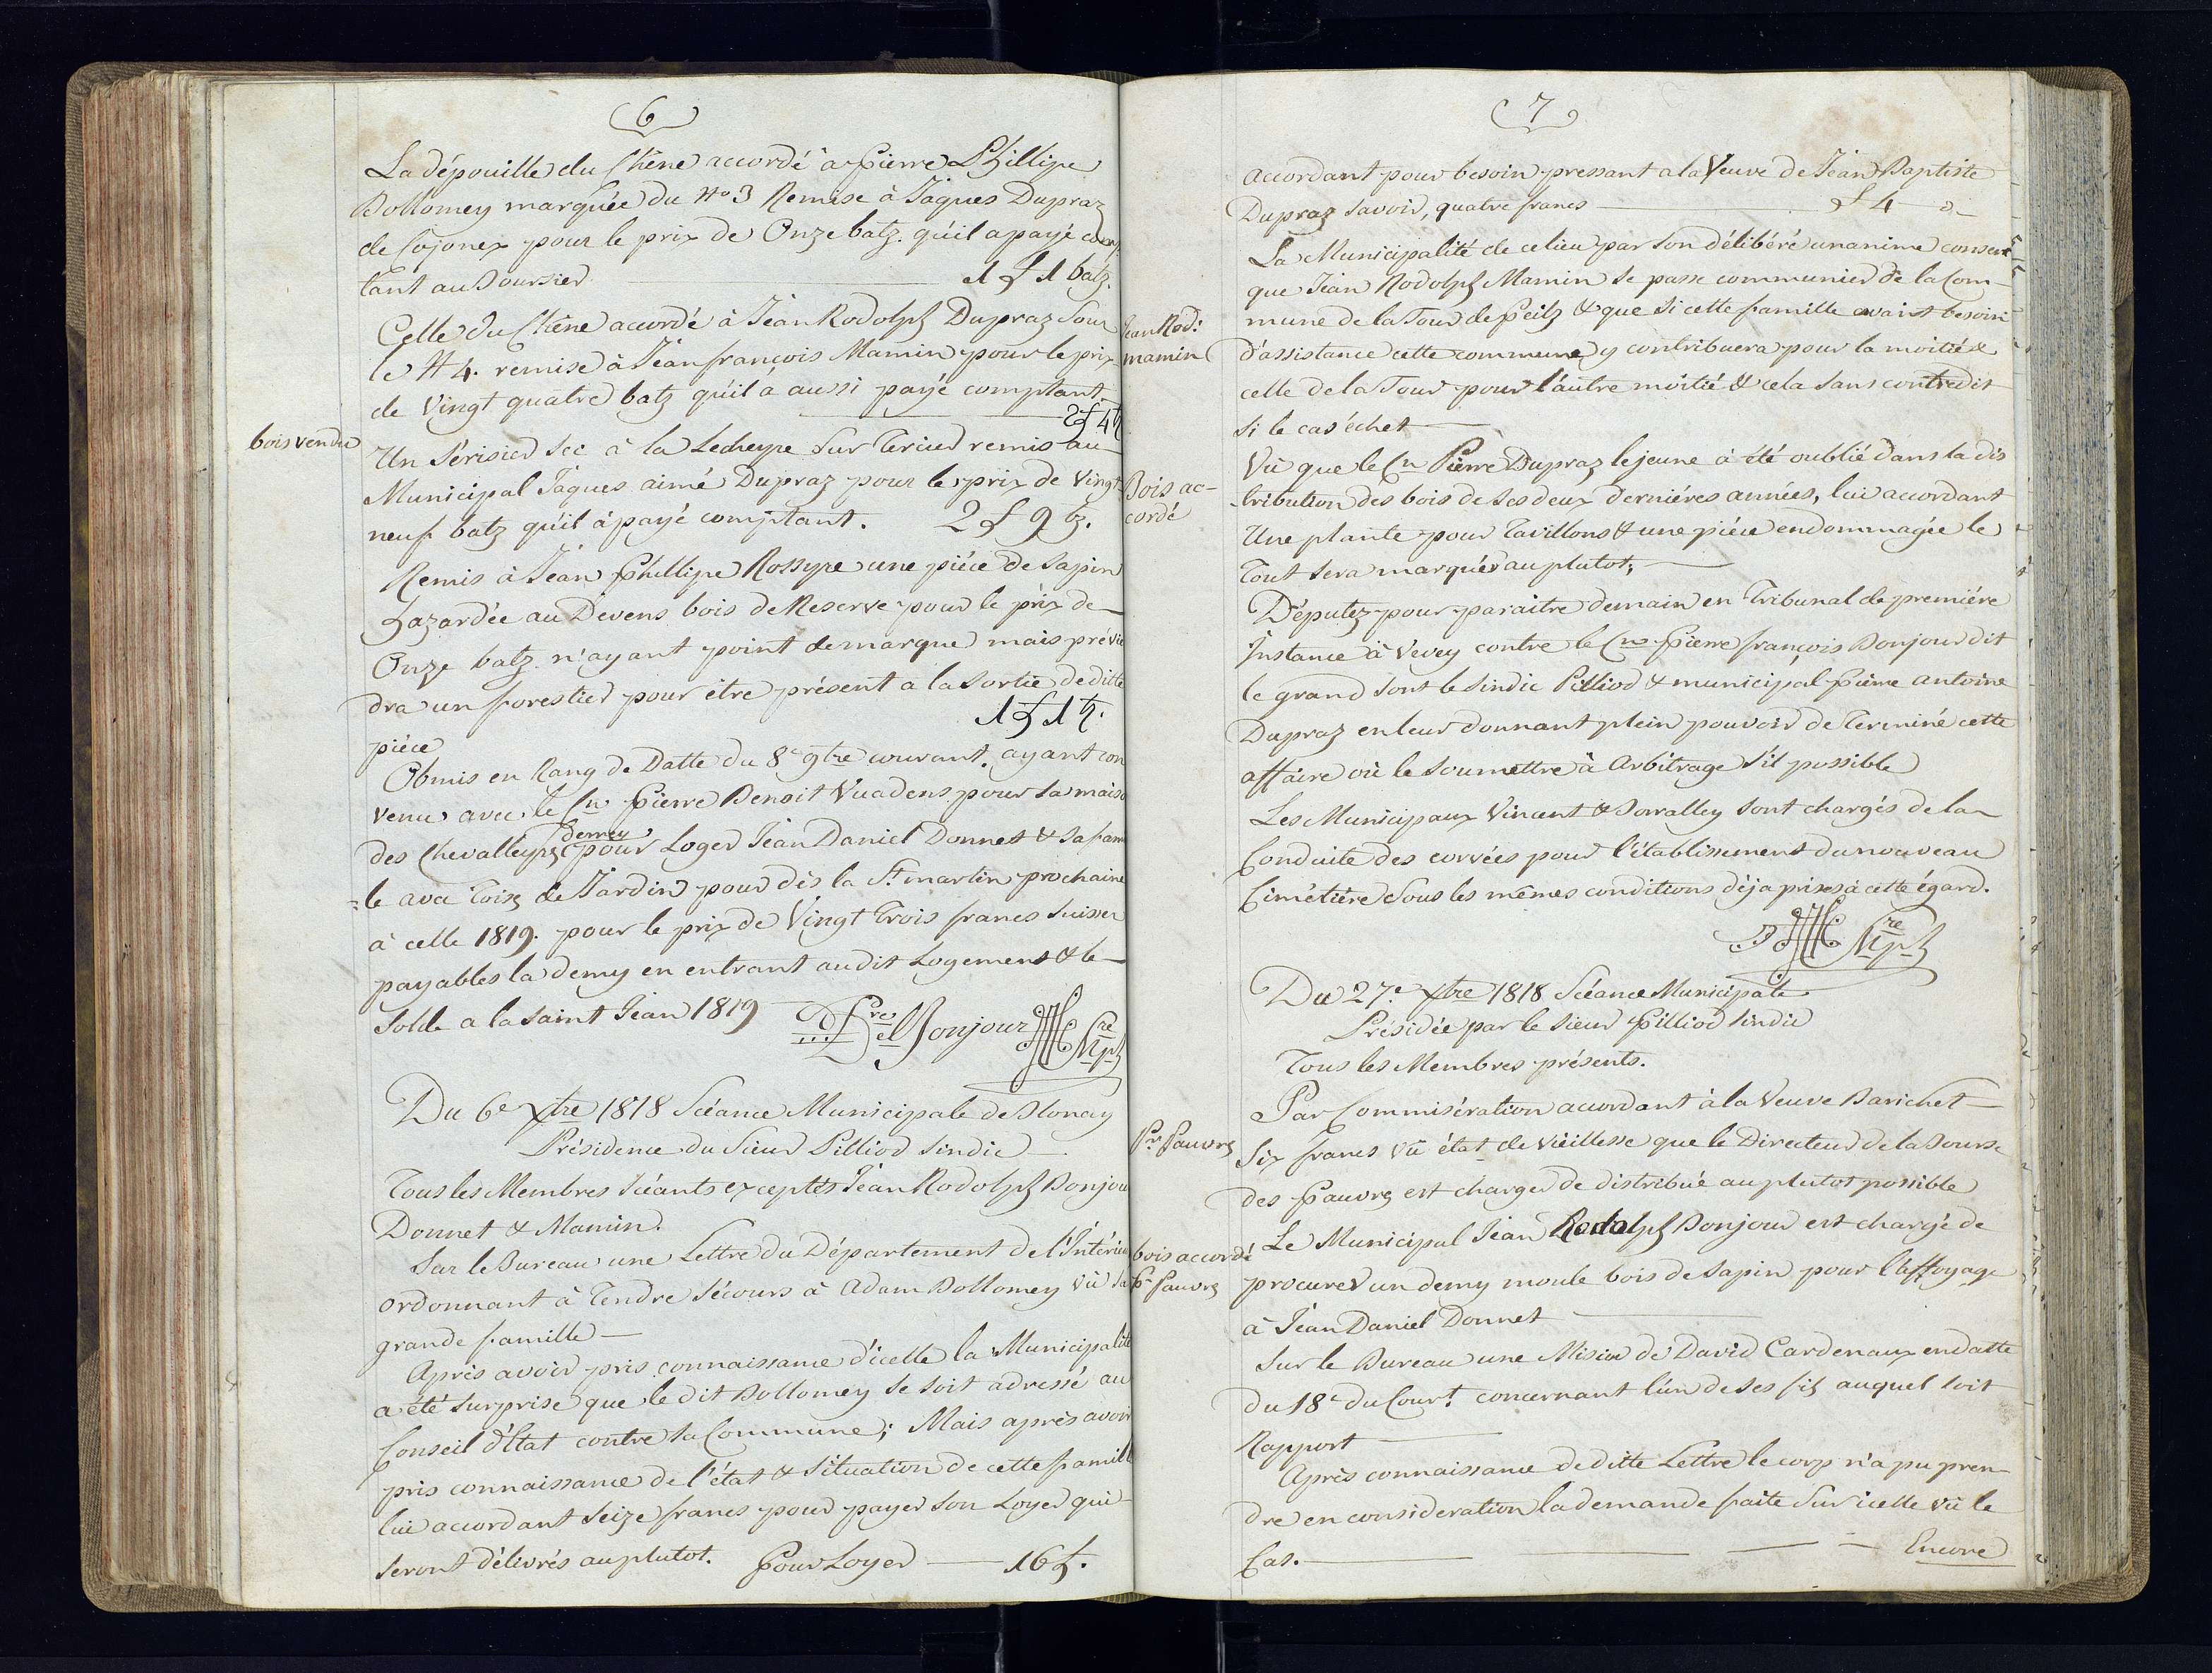 6
La dépouille du Chêne accordé à Pierre Phillipe
Dollomey marquée du No 3 Remise à Jaques Dupraz
de Cojonex pour le prix de Onze batz. qu'il a payé comp
tant au Boursier 1 f 1 batz.
Celle du Chêne accordé à Jean Rodolph Dupraz sous
le N 4. remise à Jean françois Mamin pour le prix
de Vingt quatre batz qu'il a aussi payé comptant
2 f 4 bz
bois vendu
Un Sérisier Sec à la Lecheyre Sur Tercier remis au
Municipal Jaques aimé Dupraz pour le prix de Vingt
neuf batz qu'il à payé comptant. 2 f 9 bz.
Remis à Jean Phillipe Rossyre une piéce de Sapin
hazardée au Devens bois de Reserve pour le prix de
Onze batz. n'ayant point de marque mais prévien
dra un forestier pour être présent a la sortie de ditte
1 f 1 bz.
piéce
Obmis en Rang de Datte du 8e 9bre courant. ayant con
venu avec le Cn Pierre Benoit Vuadens pour sa maison
demey
des Chevalleyres pour Loger Jean Daniel Donnet & sa fami
=le avec Toise de Jardin pour dès la St. martin prochaine
à celle 1819. pour le prix de Vingt Trois francs Suisses
payables la demy en entrant audit Logement & le
Solde a la saint Jean 1819
Bonjour
Du 6e Xbre 1818 Scéance Municipale de Blonay
Présidence du Sieur Pilliod Sindic
Tous les Membres Scéants exceptés Jean Rodolph Bonjour
Donnet & Mamin.
Sur le Bureau une Lettre du Département de l'Intérieur
ordonnant à Tendre Sécours à Adam Dollomey vû sa
grande famille
Après avoir pris connaissance d'icelle la Municipalité
a été surprise que le dit Dollomey se soit adressé au
Conseil d'Etat contre sa Commune; Mais après avoir
pris connaissance de l'état & Situation de cette famille
lui accordant Seize francs pour payer son Loyer qui
seront délivrés au plutot. Pour Loyer 16 f.
7
accordant pour besoin pressant a la Veuve de Jean Baptiste
Dupraz Savoir, quatre francs f 4
La Municipalité de ce lieu par son délibéré unanime consent
Jean Rod:
mamin
que Jean Rodolph Mamin se passe communier de la Com-
mune de la Tour de Peilz & que si cette famille avait besoin
d'assistance cette commune y contribuera pour la moitié &
celle de la Tour pour l'autre moitié & cela sans contredit
si le cas échet
Bois ac-
cordé
Vû que le Cn Pierre Dupraz le jeune à été oublié dans la dis
tribution des bois de Ses deux derniéres années, lui accordant
Une plante pour Tavillons & une piéce endommagée le
Tout sera marquée au plutot;
Députez pour paraitre demain en Tribunal de premiére
Instance à Vevey contre le Cn Pierre françois Bonjour dit
le grand Sont le Sindic Pilliod & municipal Pierre antoine
Dupraz en leur donnant plein pouvoir de Terminé cette
affaire où le soumettre à Arbitrage S'il possible
Les Municipaux Vincent & Dovalley Sont chargés de la
Conduite des corvées pour l'établissement du nouveau
Cimétiére Sous les mêmes conditions déja prises à cette égard.
Du 27e Xbre 1818 Scéance Municipale
Présidée par le Sieur Pilliod Sindic
Tous les Membres présents.
Pr. Pauvres
Par Commisération accordant à la Veuve Barichet
Six francs vû état de vieillesse que le Directeur de la Bourse
des Pauvres est charger de distribué au plutot possible
bois accordé
Pr Pauvres
Le Municipal Jean Rodolph Bonjour est chargé de
procurer un demy moule bois de Sapin pour l'affoyage
à Jean Daniel Donnet
Sur le Bureau une Missive de David Cardenaux en datte
du 18e du Court. concernant l'un de ses fils auquel soit
Rapport
Après connaissance de ditte Lettre le corp n'a pu pren
dre en consideration la demande faite Sur icelle vû le
Cas. Encore